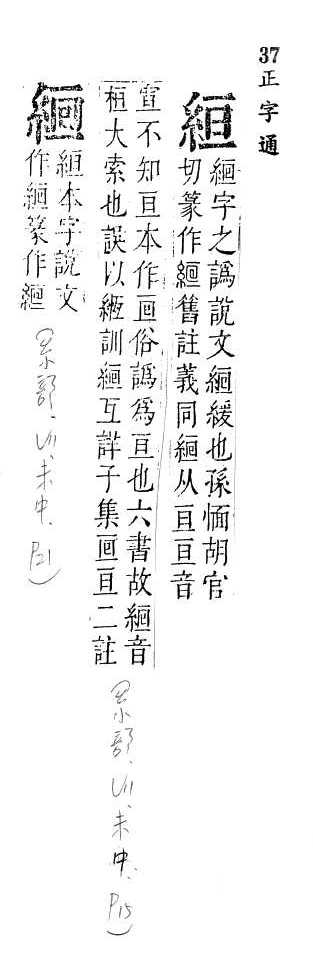 37正字通
絙
字之譌說文緩也孫愐胡官
切篆作舊註義同从亘亘音
宣不知亘本作𠄢俗譌為亘也六書故音
桓大索也誤以縆訓互詳子集𠄢亘二註
糸部.未中.P15)
絙本字說文
作篆作
糸部.未中.P21)